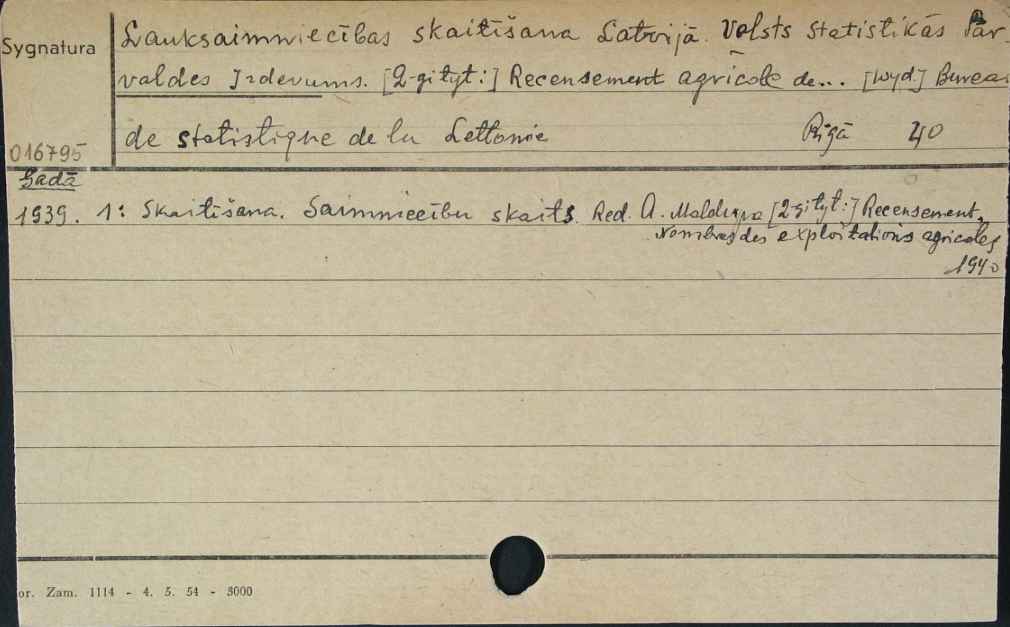 Sygnatura
Lauksaimniecības skaitīšana Latvijā. Valsts Statistikas Pār-
valdes Izdevums. [2-gi tyt:] Recensement agricole de... [wyd] Bureau
de statistique de la Lettonie Rīgā 40
016795
Gadā
1939. 1: Skaitīšana. Saimniecību skaits. Red. A. Maldupa [2-gi tyt:] Recensement.
Nombres des exploitations agricoles
1940
or. Zam. 1114 - 4. 5. 54 - 3000